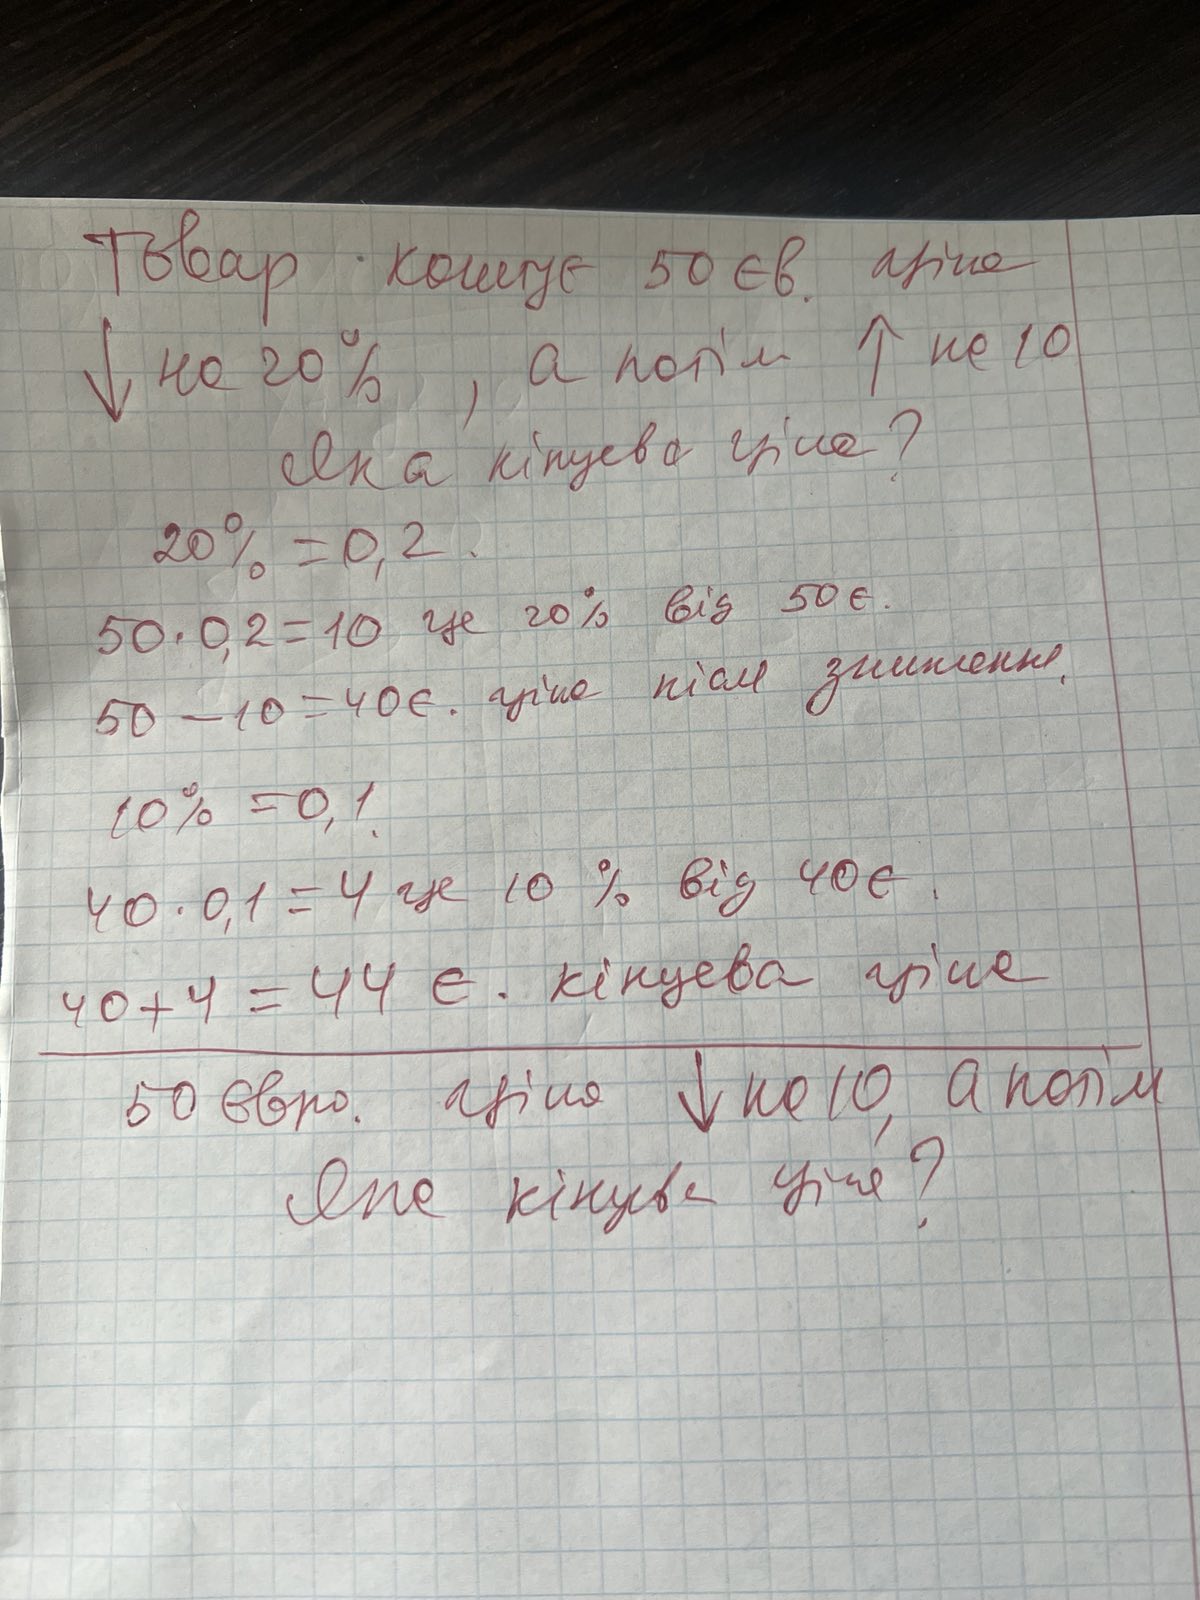 Товар кошує 50 єв. ціна
↓ на 20% , а потім ↑ на 10
Яка кінцева ціна?
20% = 0,2.
50·0,2=10 це 20% від 50є.
50-10=40є. ціна після зниження.
10% =0,1.
40·0,1=4 це 10 % від 40є.
40+4=44 є. кінцева ціна
50 євро. ціна ↓ на 10, а потім
Яка кінцева ціна?